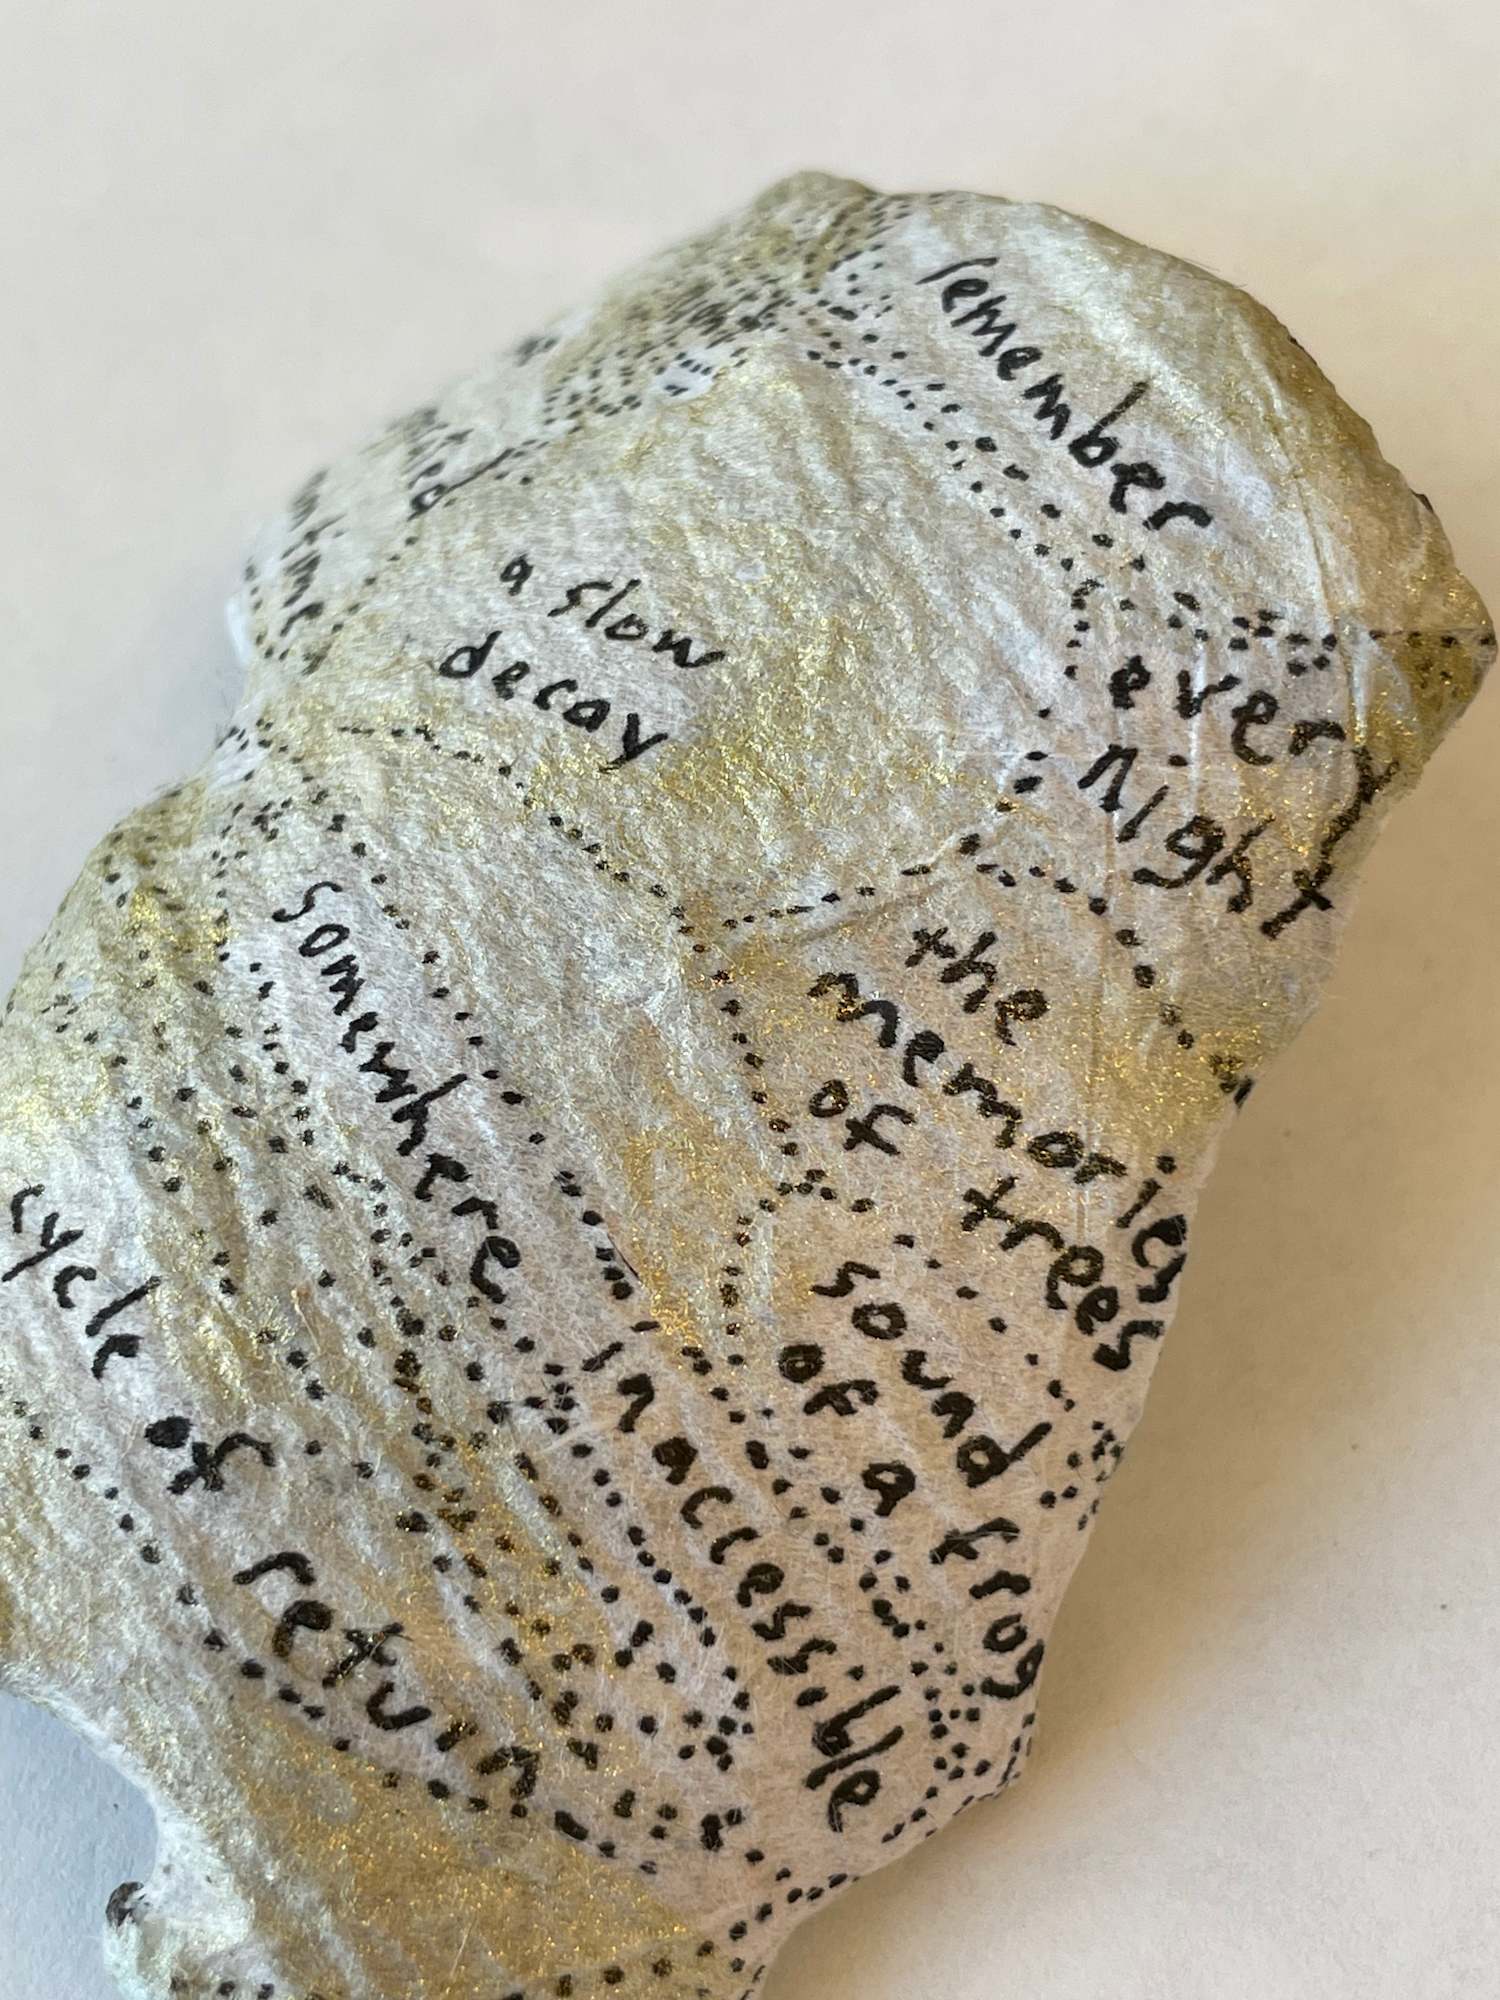 remember
every
night
a slow
decay
the
memories
of trees
sound
of a frog
somewhere inaccessible
cycle of return